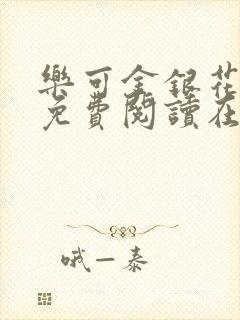 樂可金銀花
免費閱讀在
哦一泰